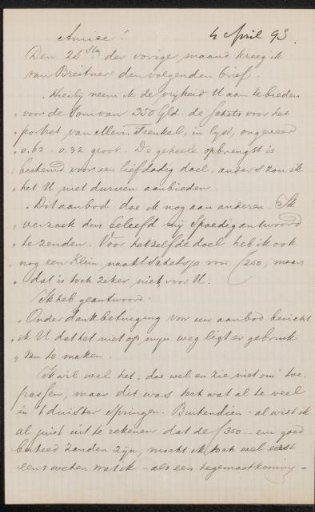 Amice! 4 April 93.
Den 28sten der vorige maand kreeg ik
van Breitner den volgenden brief:
„Hierbij neem ik de vrijheid U aan te bieden
„voor de som van 350 Gld. de schets voor het
„portret van Frenkel, in lijst, ongeveer
„0.62 - 0.32 groot. De geheele opbrengst is
„bestemd voor een liefdadig doel, anders zou ik
„het U niet durven aanbieden.
„Dit aanbod doe ik nog aan anderen. Ik
„verzoek dus beleefd mij spoedig antwoord
„te zenden. Voor hetzelfde doel heb ik ook
„nog een klein naaktstudietje van ƒ250, maar
„dat is toch zeker niet voor U.
Ik heb geantwoord:
„Onder dankbetuiging voor uw aanbod bericht
ik U dat het niet op mijn weg ligt er gebruik
van te maken.
Ik wil wel het
passen, maar dit was toch wat al te veel
in 't duister springen. Buitendien - al wist ik
al juist uit te rekenen dat de ƒ350 een goed
besteed zouden zijn, mocht ik toch wel eerst
eens weten wat ik - als een tegemoetkoming -